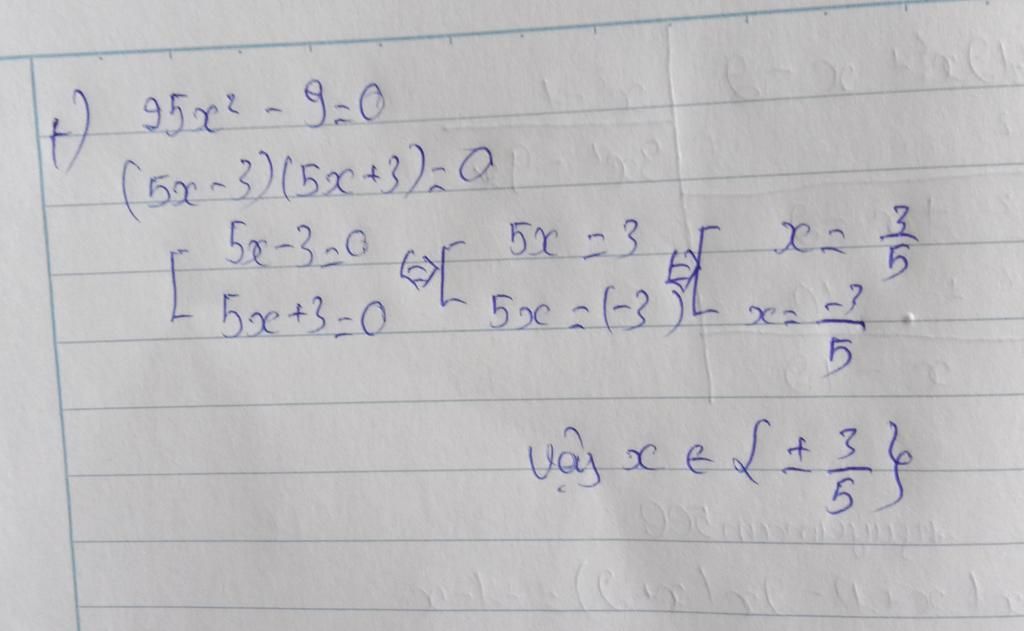 f) 25x² - 9 = 0
(5x - 3)(5x + 3) = 0
[ 5x - 3 = 0 ⇔ [ 5x = 3 ⇔ [ x = 3/5
5x + 3 = 0 5x = (-3) x = -3/5
Vậy x ∈ { ± 3/5 }